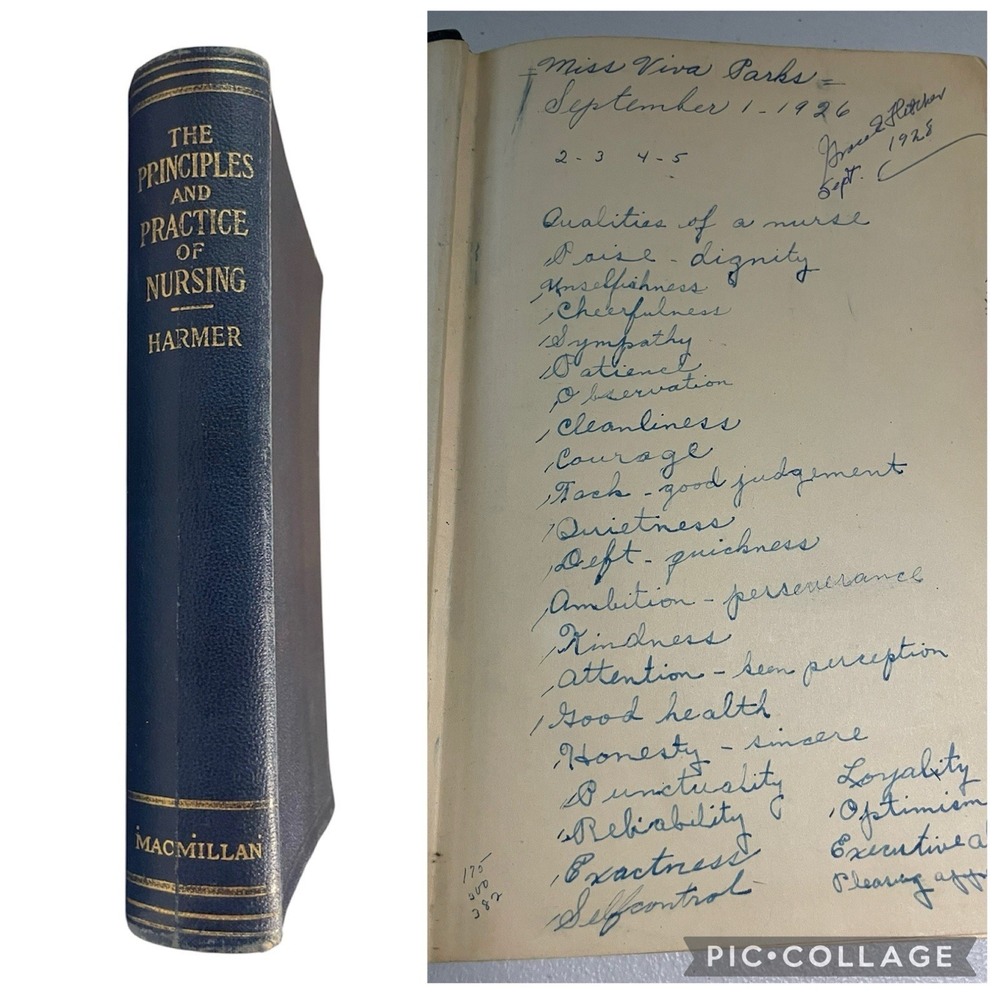 THE
PRINCIPLES
AND
PRACTICE
OF
NURSING
HARMER
MACMILLAN
Miss Viva Parks
September 1 - 1926
Fletcher
Sept. 1928
2 - 3 4 - 5
Qualities of a nurse
Poise - dignity
Unselfishness
Cheerfulness
Sympathy
Patience
Observation
Cleanliness
Courage
Tack - good judgement
Quietness
Deft - quickness
Ambition - perseverance
Kindness
Attention - keen perception
Good health
Honesty - sincere
Punctuality
Reliability
Exactness
Selfcontrol
Loyality
Optimism
Executive a
Pleasing app
175
300
382
PIC•COLLAGE